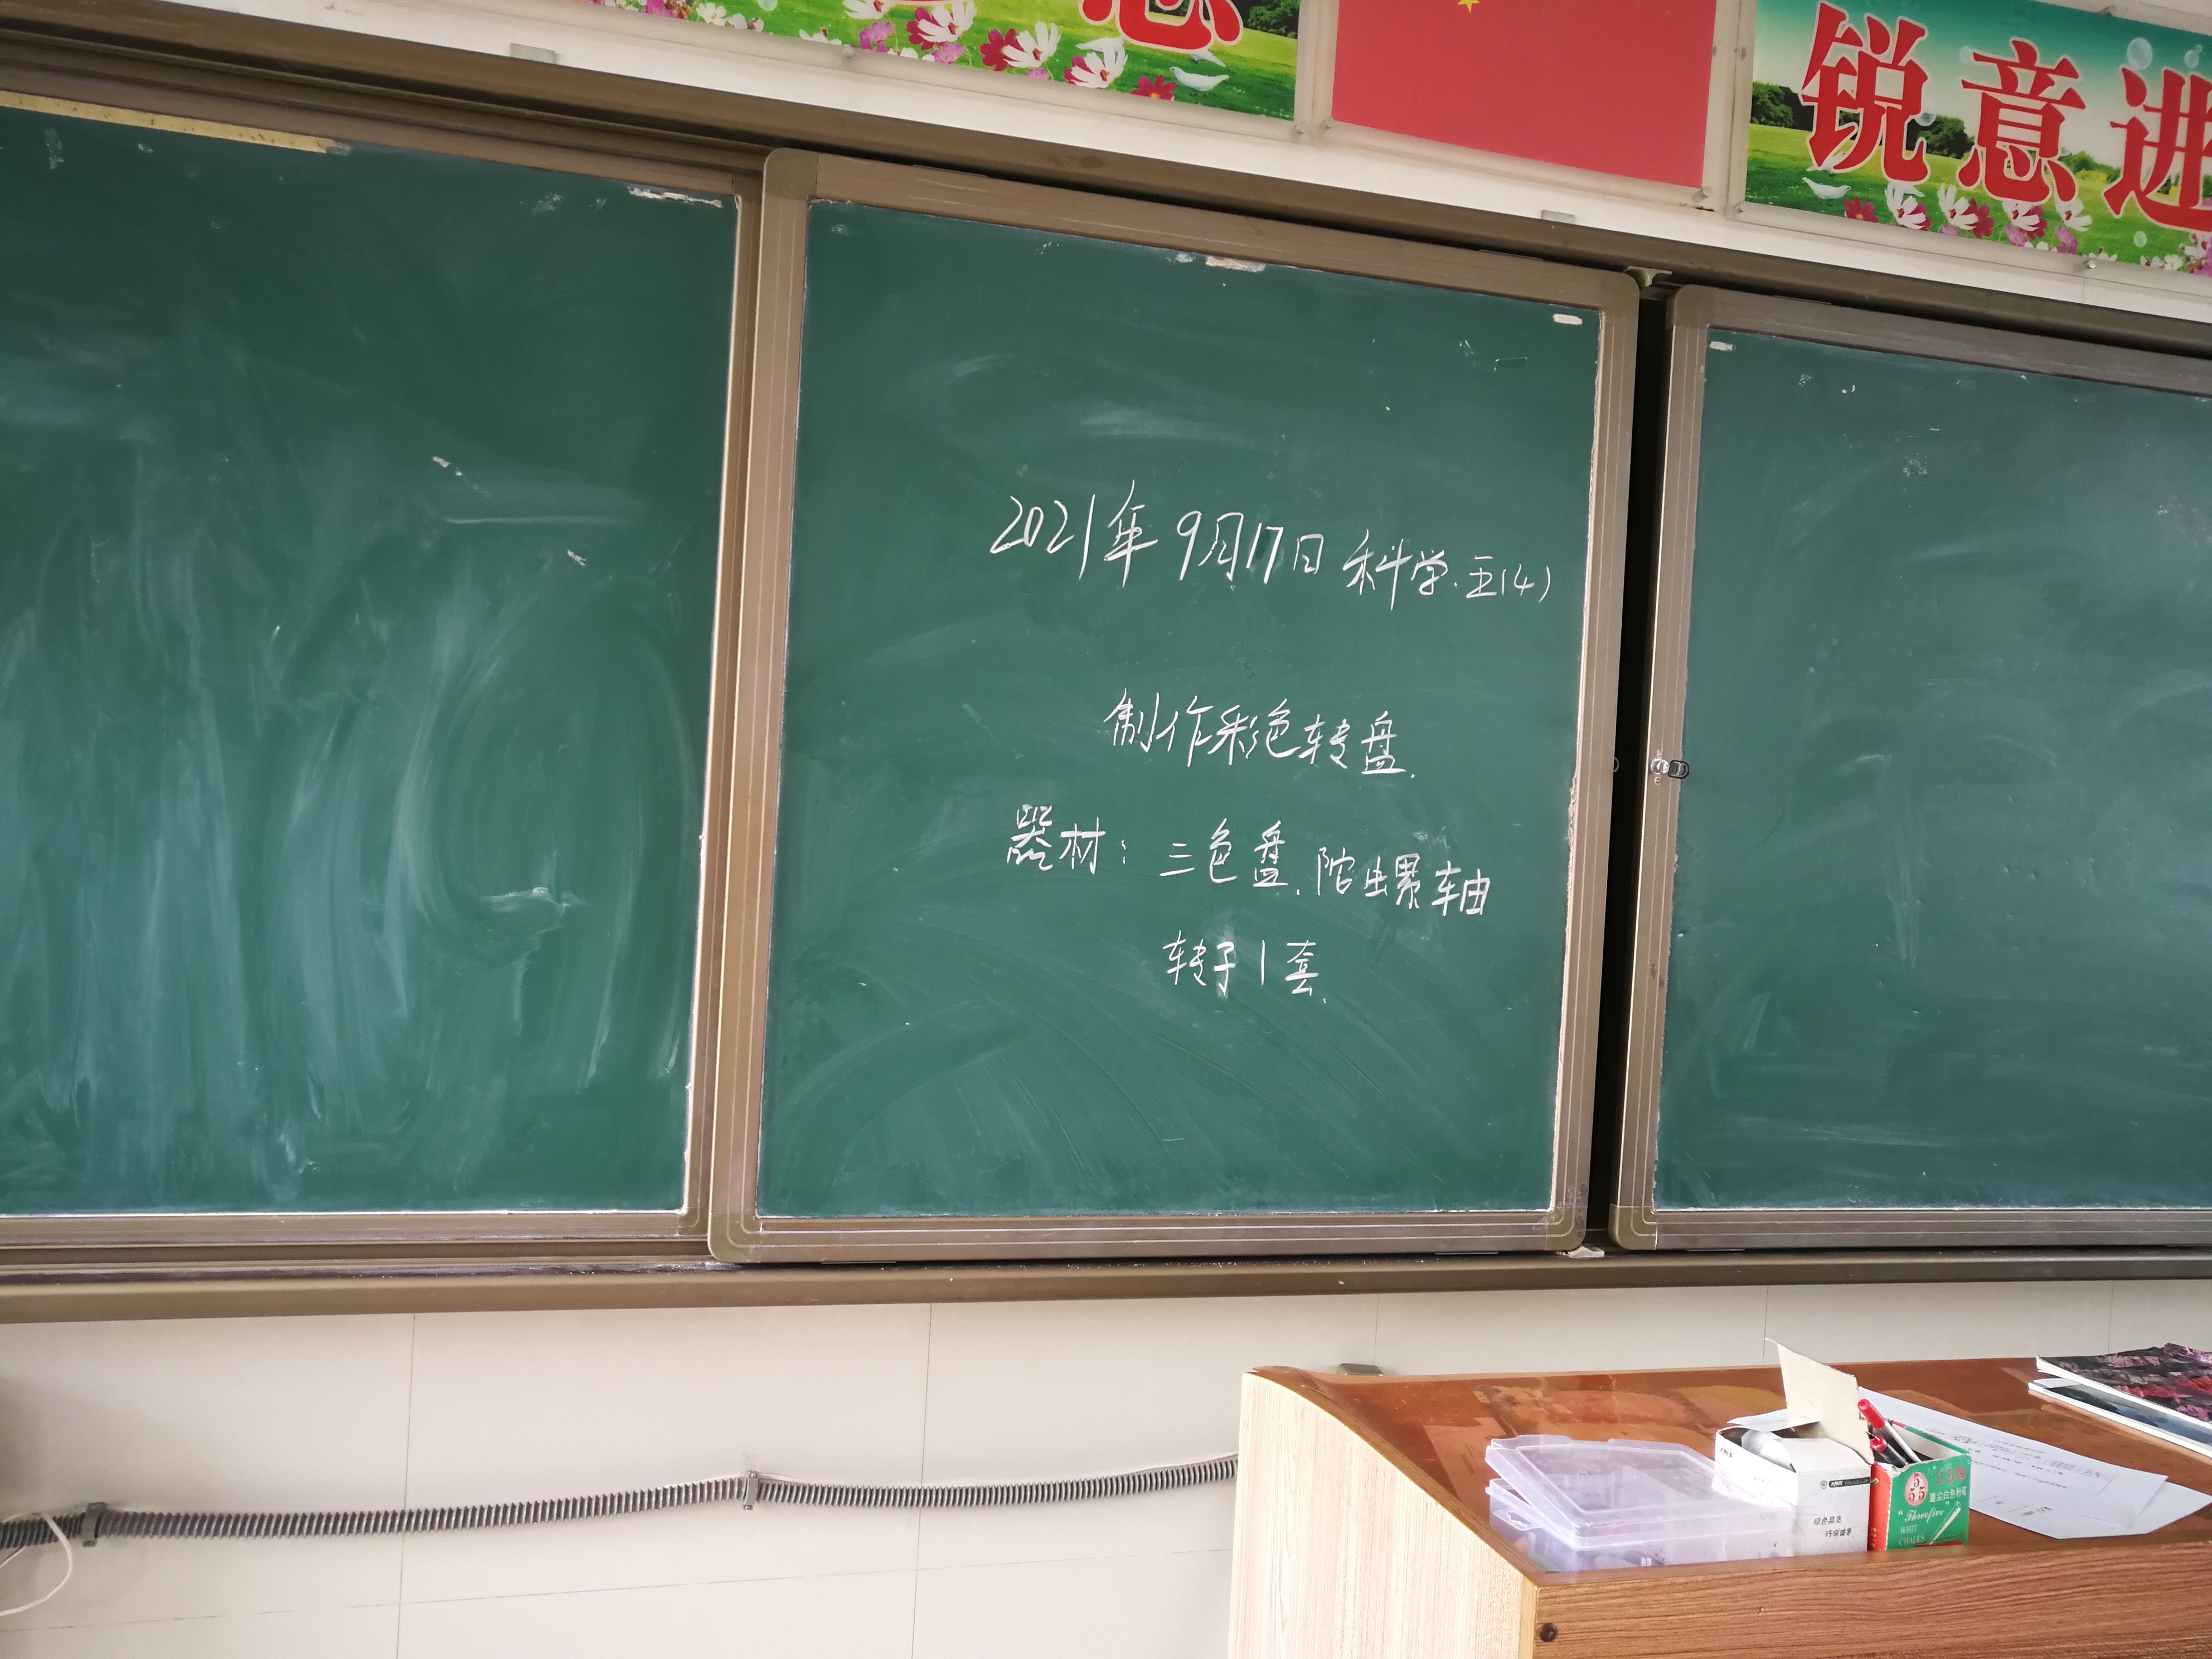 锐意进
2021年9月17日 科学.五(4)
制作彩色转盘.
器材：三色盘、陀螺轴
转子1套.
绿色品览
555
"Threefive"
WHIT
CHALKS